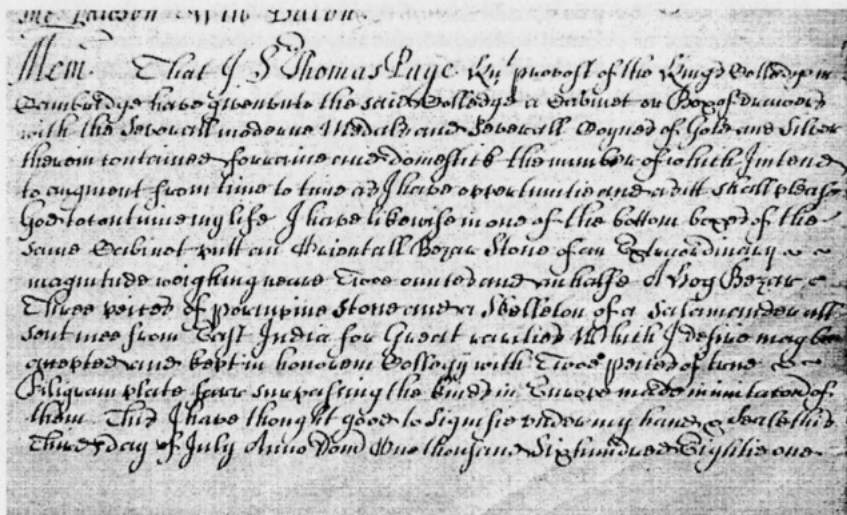 Mem. That I Sr Thomas Page Knt. provost of the Kings Colledge in
Cambridge have given unto the said Colledge a Cabinet or Box of drawers
with the severall moderne Medals and severall Coynes of Gold and Silver
therein contained forraine and domestick the number of which I intend
to augment from time to time as I have opportunitie and as itt shall please
God to continue my life I have likewise in one of the bottom boxes of the
same Cabinet putt an Orientall Bezar Stone of an Extraordinary
magnitude weighing neare Twoe ounces and an halfe A Hog Bezar
Three peices of porcupine Stone and a Skelleton of a Salamander all
sent mee from East India for Great rarities Which I desire may bee
accepted and kept in honorem Collegij with Twoe peices of true
Filigram plate farr surpassing the kinds in Europe made in imitation of
them This I have thought good to Signifie under my hand & Seale this
Third day of July Anno Dom One thousand Six hundred Eightie one